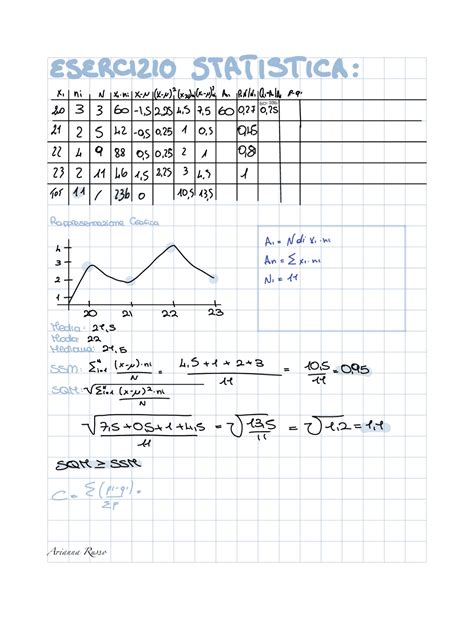 ESERCIZIO STATISTICA:
xi ni N xi·ni x-μ (x-μ)² (x-μ)ni (x-μ)²ni Ai
20 3 3 60 -1,5 2,25 4,5 7,5 60 0,27 0,25
21 2 5 42 -0,5 0,25 1 0,5 0,45
22 4 9 88 0,5 0,25 2 1 0,8
23 2 11 46 1,5 2,25 3 4,5 1
Tot 11 / 236 0 10,5 13,5
Rappresentazione Grafica
Ai = N di xi·ni
An = Σ xi·ni
Ni = 11
4
3
2
1
20 21 22 23
Media: 21,5
Moda: 22
Mediana: 21,5
SSM: Σᴺi=1 (x-μ)·ni / N = 4,5+1+2+3 / 11 = 10,5 / 11 = 0,95
SQM: √Σᴺi=1 (x-μ)²·ni / N
√7,5+0,5+1+4,5 / 11 = √13,5 / 11 = √1,2 = 1,1
SQM ≥ SSM
C = Σ(pi-qi) / Σp =
Arianna Russo